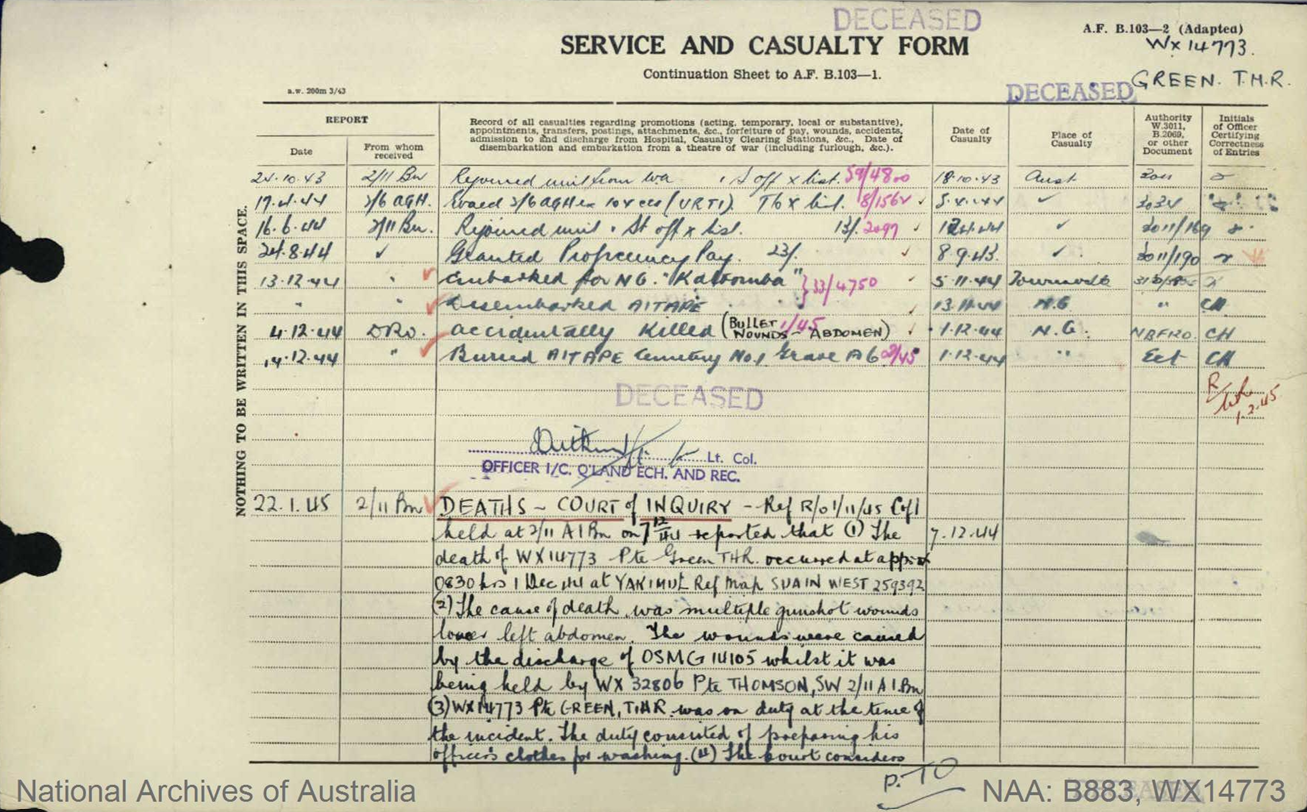 DECEASED
A.F. B.103—2 (Adapted)
SERVICE AND CASUALTY FORM
WX 14773.
Continuation Sheet to A.F. B.103—1.
GREEN. T.H.R.
DECEASED
a.w. 200m 3/43
REPORT
Date
From whom received
Record of all casualties regarding promotions (acting, temporary, local or substantive),
appointments, transfers, postings, attachments, &c., forfeiture of pay, wounds, accidents,
admission to and discharge from Hospital, Casualty Clearing Stations, &c., Date of
disembarkation and embarkation from a theatre of war (including furlough, &c.).
Date of Casualty
Place of Casualty
Authority W.3011, B.2069, or other Document
Initials of Officer Certifying Correctness of Entries
NOTHING TO BE WRITTEN IN THIS SPACE.
24.10.43 2/11 Bn Rejoined unit from X list. 59/4800 18.10.43 Aust
17.4.44 2/6 AGH. 2/6 AGH ex 104 CCS (URTI) X list 8/1564 5.4.44 ✓
16.6.44 2/11 Bn. Rejoined unit X list. 13/2097 ✓ 2011/169
24.8.44 ✓ Granted Proficiency Pay. 23/. 8.9.43. ✓ 2011/190
13.12.44 " Embarked for NG. "Katoomba" 33/4750 5.11.44 Townsville
" Disembarked AITAPE " 13.11.44 N.G " CH
4.12.44 DRO. accidentally Killed (BULLET WOUNDS - ABDOMEN) 1/45 1.12.44 N.G. CH
14.12.44 " Buried AITAPE Cemetery No1 Grave A6 1.12.44 " CH
1.2.45
DECEASED
Lt. Col.
OFFICER I/C. Q'LAND ECH. AND REC.
22.1.45 2/11 Bn DEATHS ~ COURT of INQUIRY - Ref R/01/11/45 Cof I
held at 2/11 A I Bn on 7 12/44 reported that (1) The 7.12.44
death of WX14773 Pte Green THR. occurred at approx
0830 hrs 1 Dec 44 at YAKIMUL Ref Map SUAIN WEST 259392
(2) The cause of death was multiple gunshot wounds
lower left abdomen. The wounds were caused
by the discharge of OSMG 14105 whilst it was
being held by WX 32806 Pte THOMSON, SW 2/11 A I Bn
(3) WX14773 Pte GREEN, T.H.R. was on duty at the time of
the incident. The duty consisted of preparing his
officer's clothes for washing. (4) The Court considers
P.T.O
DECEASED
National Archives of Australia
NAA: B883, WX14773